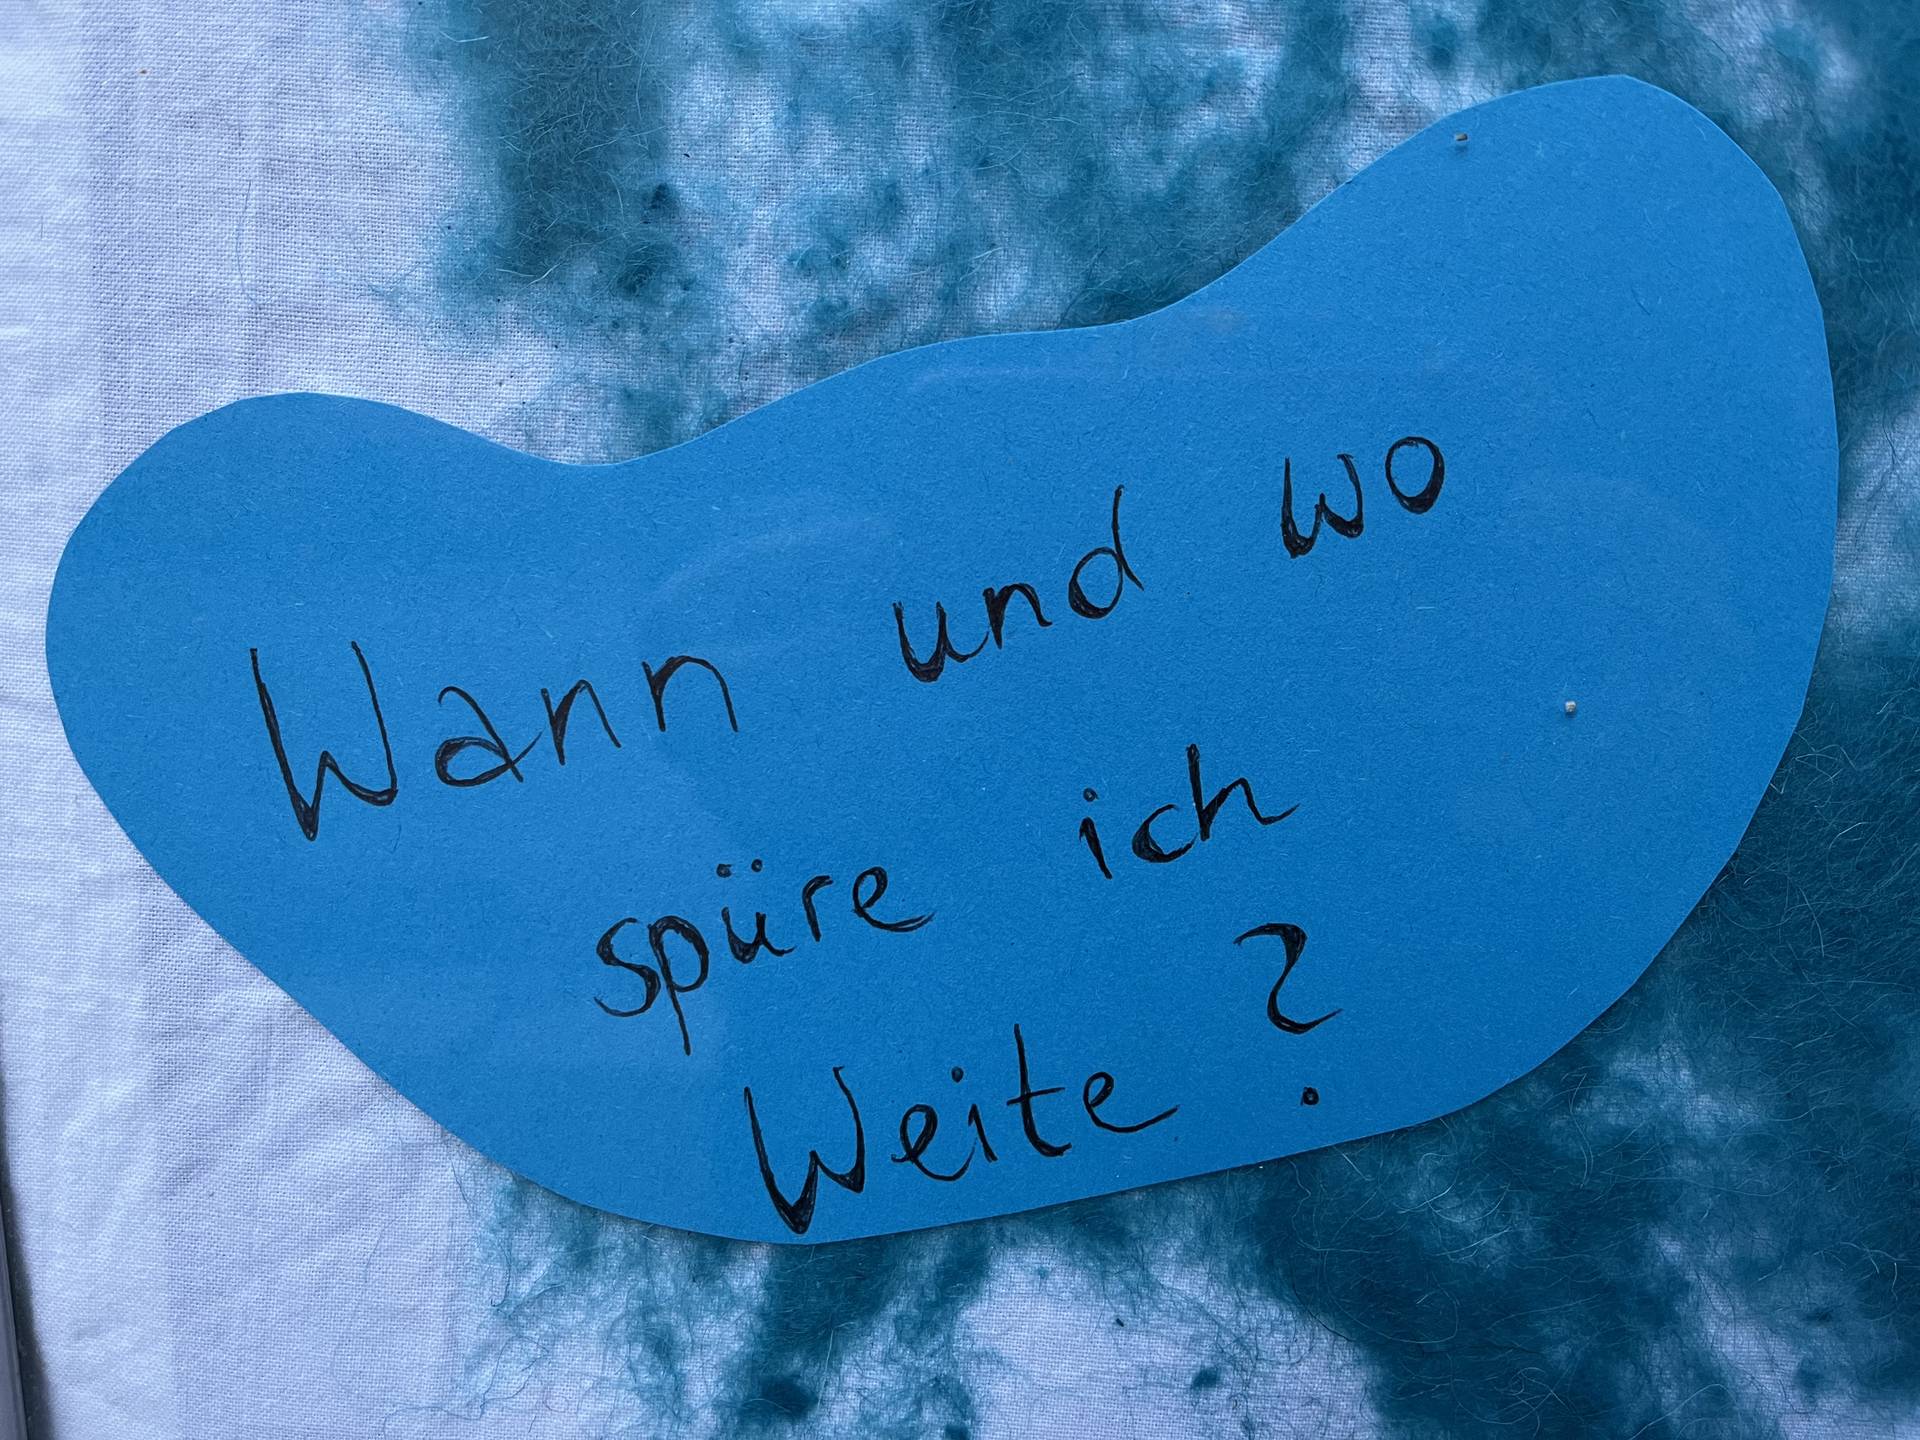 Wann und wo
spüre ich
Weite?